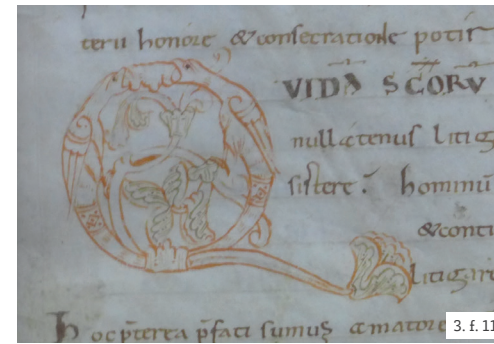 terii honore &consecratione potir
QVIDA SCORV
nullactenus litig
sistere. hominū
&conti
litigare
hocp̄terea p̄fati sumus amatore
3. f. 11